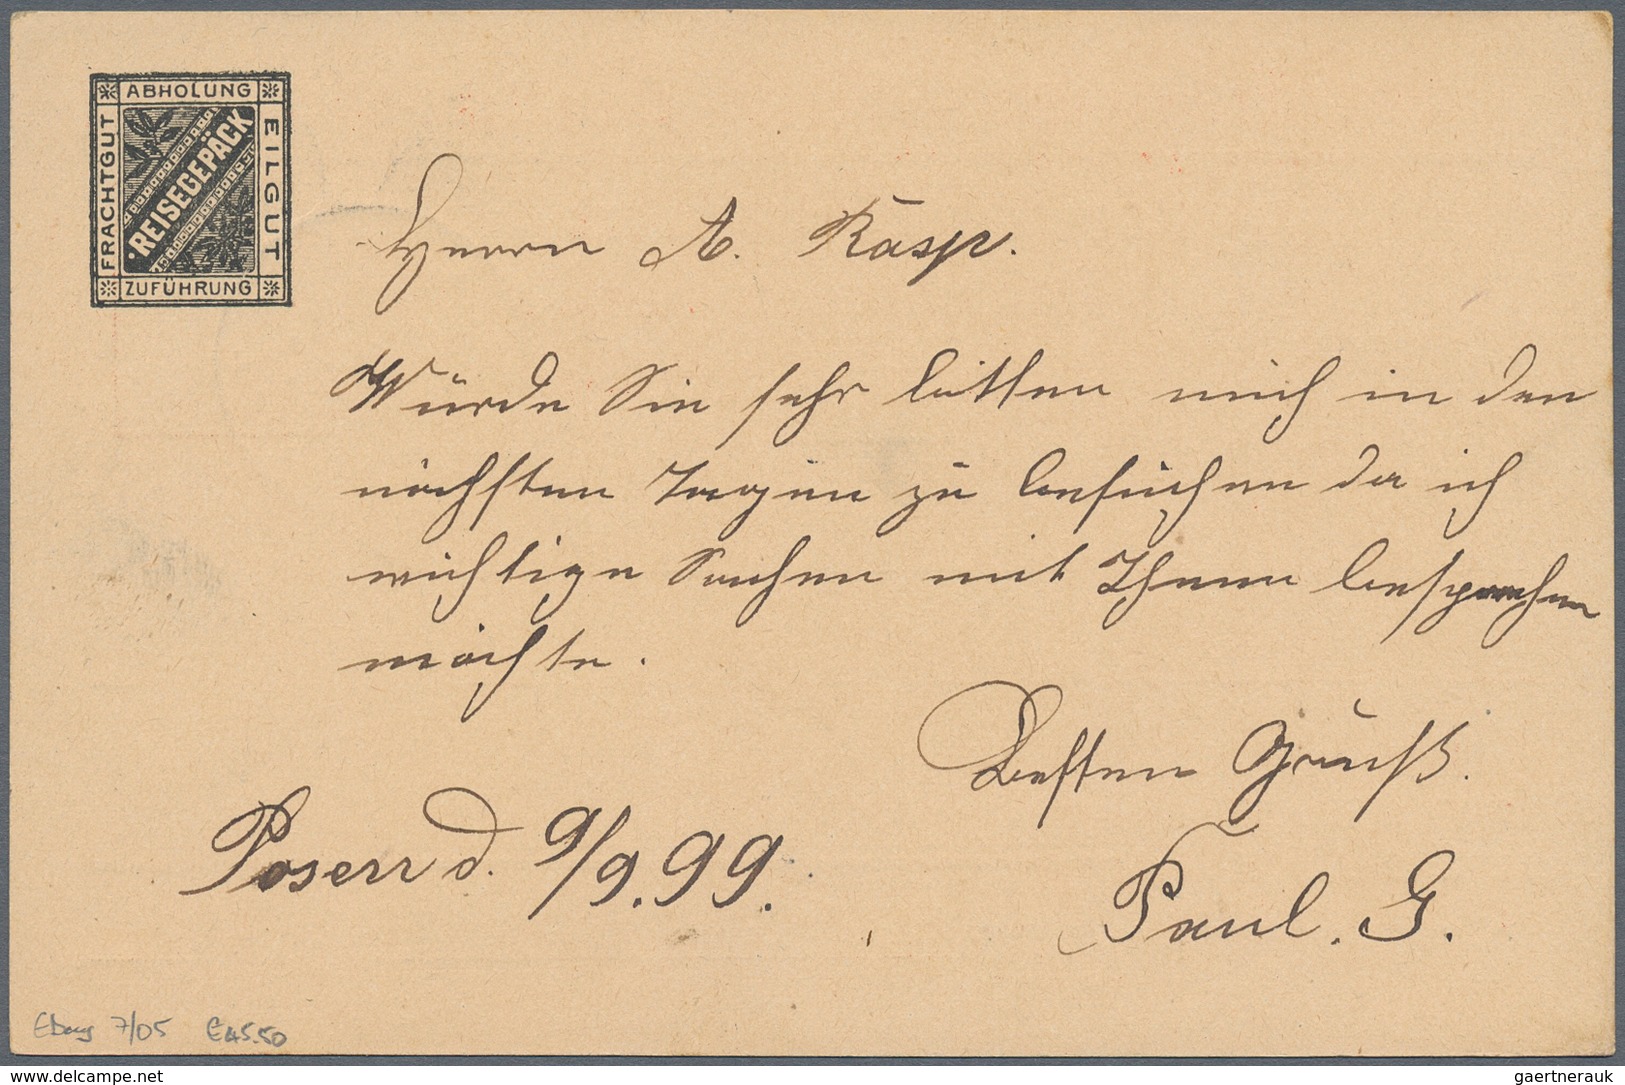 ABHOLUNG
FRACHTGUT
REISEGEPÄCK
EILGUT
ZUFÜHRUNG
Herrn A. Räsp.
Würde Sie sehr bitten mich in den
nächsten Tagen zu besuchen da ich
wichtige Sachen mit Ihnen besprechen
möchte.
Besten Gruß.
Posen d. 9/9. 99.
Paul. G.
Ebay 7/05 £45.50
delcampe.net
gaertnerauk